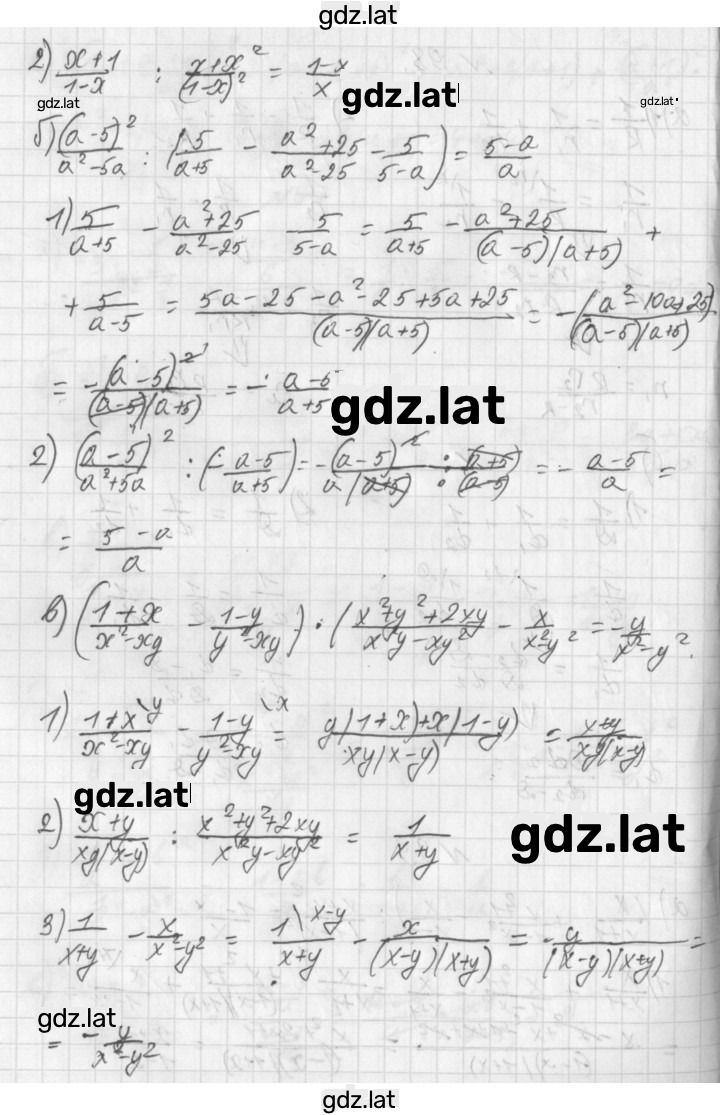 gdz.lat
2) (x+1)/(1-x) : (x+x²)/(1-x)² = (1-x)/x
gdz.lat gdz.lat gdz.lat
б) (a-5)²/(a²-5a) : (5/(a+5) - (a²+25)/(a²-25) - 5/(5-a)) = (5-a)/a
1) 5/(a+5) - (a²+25)/(a²-25) 5/(5-a) = 5/(a+5) - (a²+25)/((a-5)(a+5)) +
+ 5/(a-5) = (5a-25-a²-25+5a+25)/((a-5)(a+5)) = -(a²-10a+25)/((a-5)(a+5))
= -(a-5)²/((a-5)(a+5)) = - (a-5)/(a+5)
gdz.lat
2) (a-5)²/(a²+5a) : (-(a-5)/(a+5)) = -(a-5)²/(a(a+5)) : (a+5)/(a-5) = - (a-5)/a =
= (5-a)/a
в) ((1+x)/(x²-xy) - (1-y)/(y²-xy)) : (x²+y²+2xy)/(x²y-xy²) - x/(x²-y²) = -y/(x²-y²).
1) (1+x\y)/(x²-xy) - (1-y\x)/(y²-xy) = (y(1+x)+x(1-y))/(xy(x-y)) = (x+y)/(xy(x-y))
gdz.lat
2) (x+y)/(xy(x-y)) : (x²+y²+2xy)/(x²y-xy²) = 1/(x+y)
gdz.lat
3) 1/(x+y) - x/(x²-y²) = (1\x-y)/(x+y) - x/((x-y)(x+y)) = -y/((x-y)(x+y)) =
gdz.lat
= -y/(x²-y²)
gdz.lat